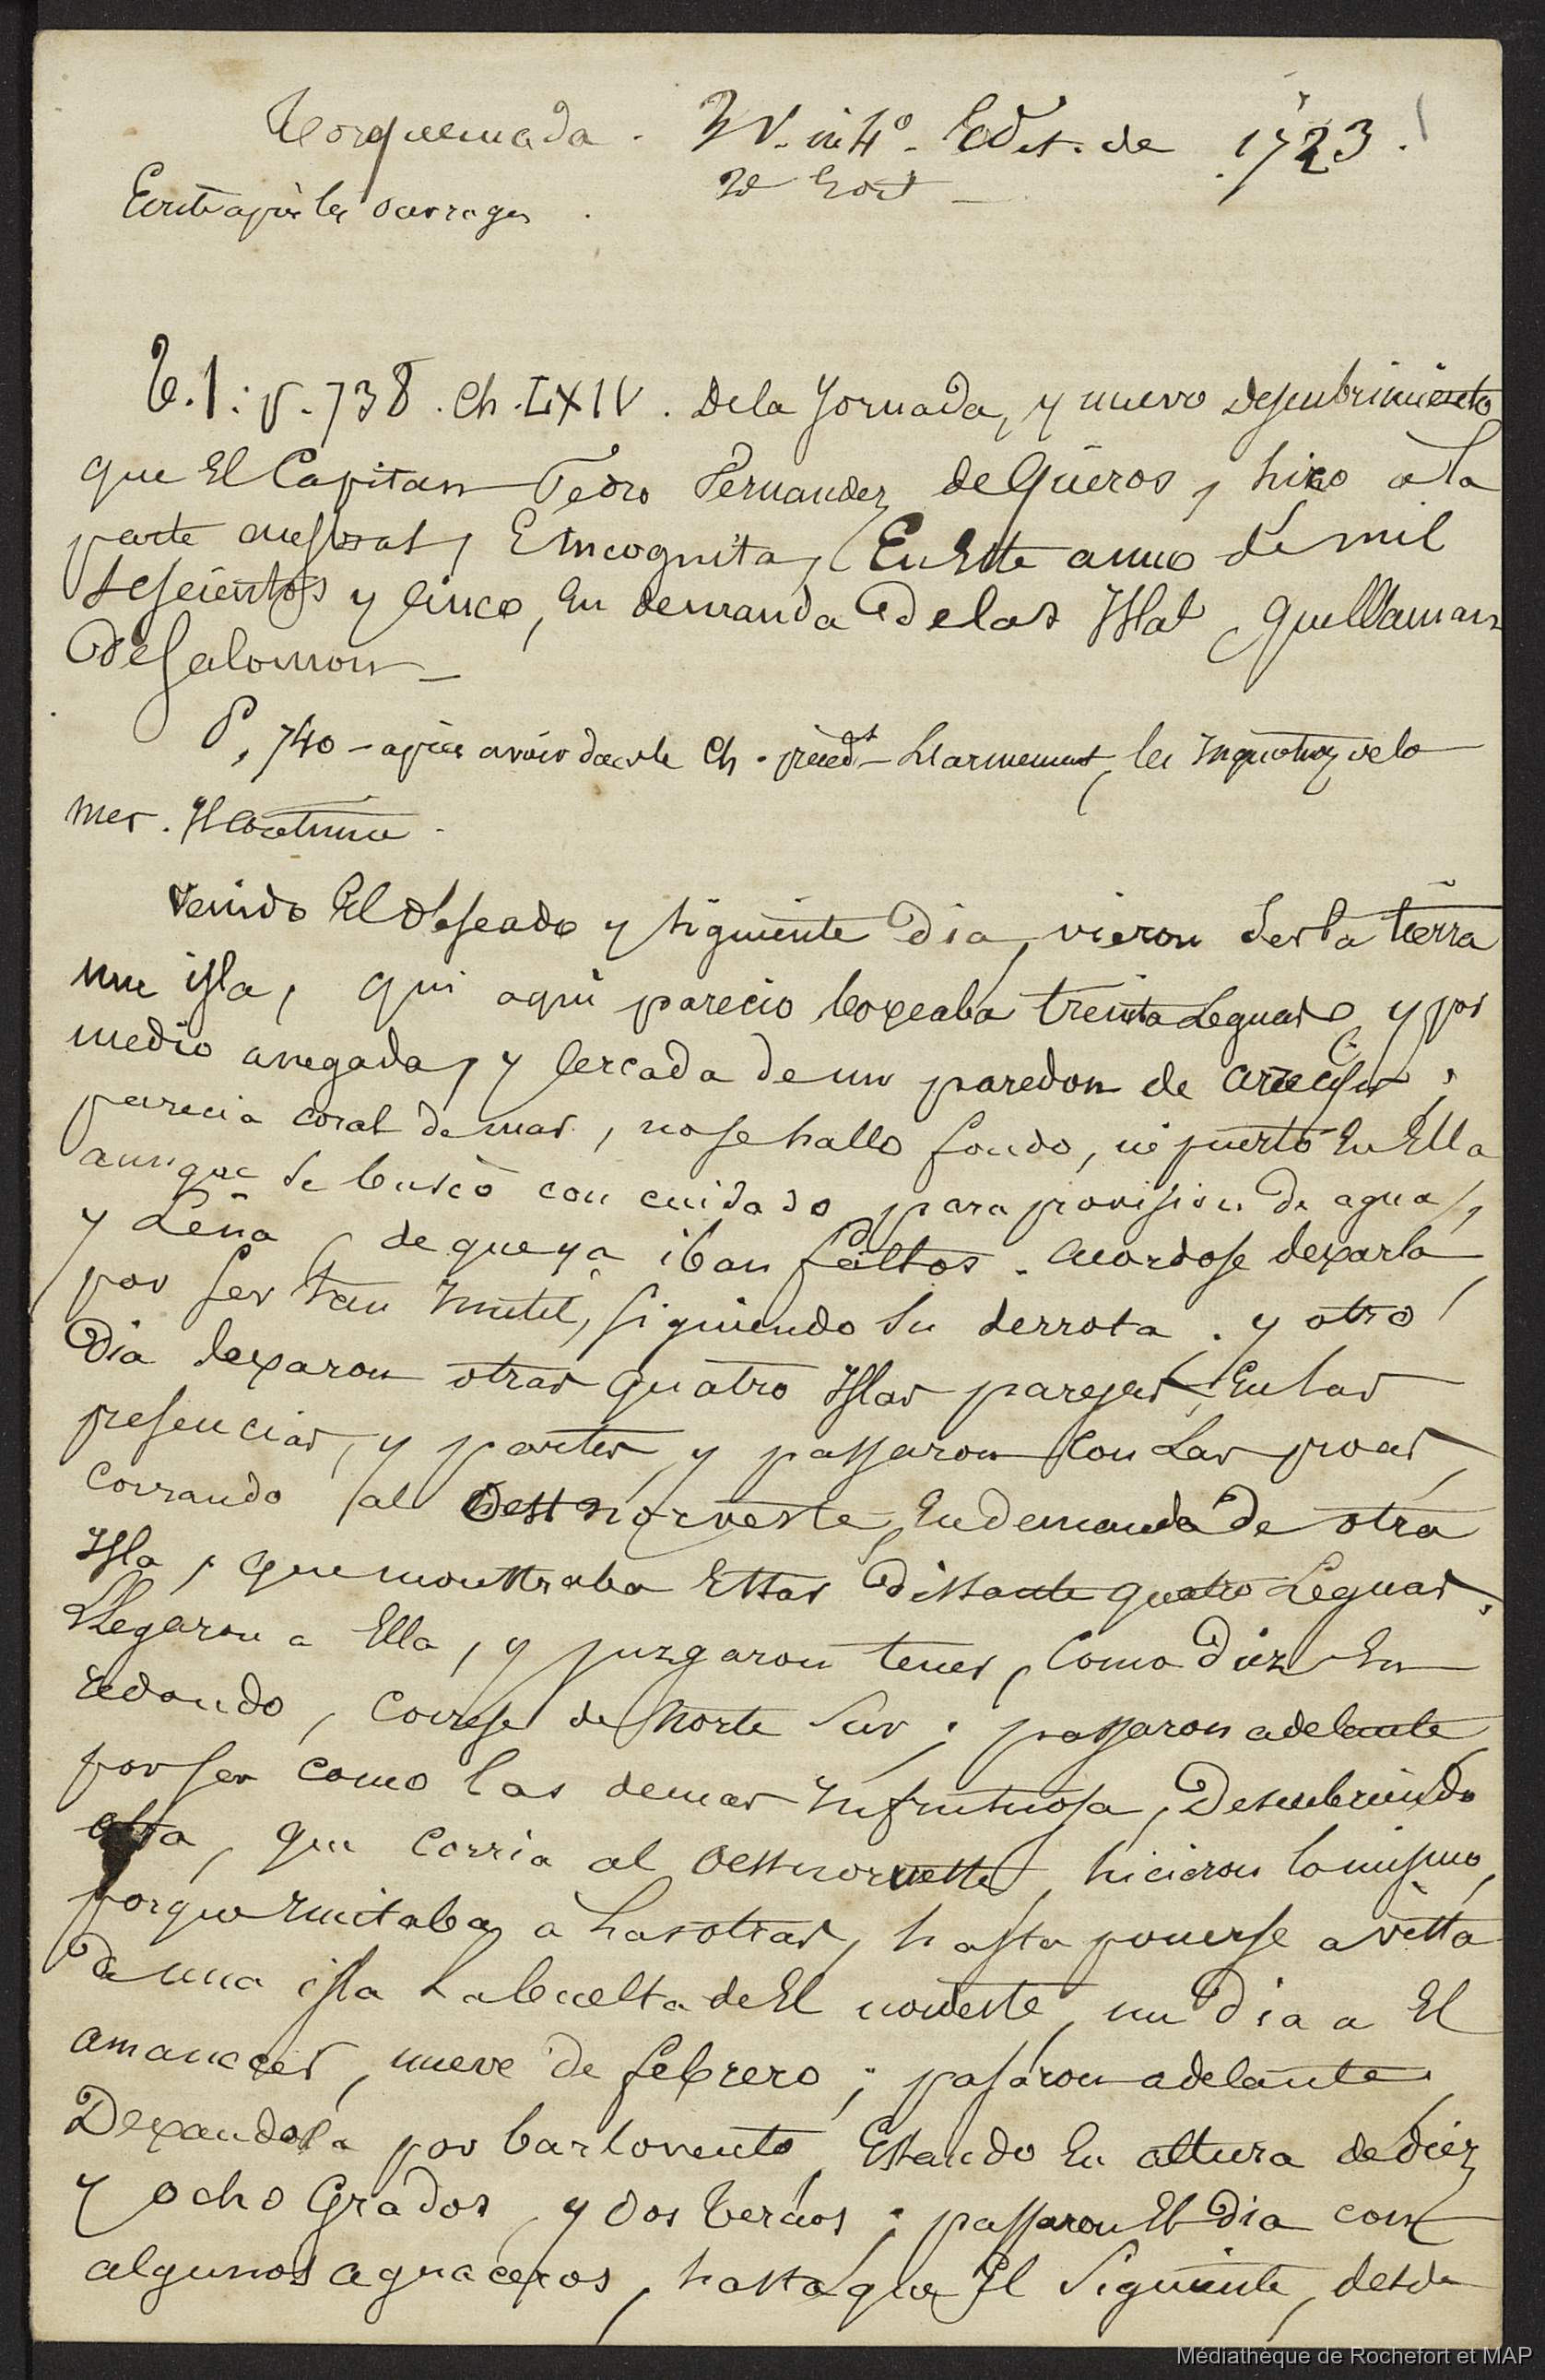 Torquemada. 3 V. in 4º. Edit. de 1723.
Ecrit après les ouvrages.
T. 1: p. 738. Ch. LXIV. De la Jornada, y nuevo Descubrimiento
que El Capitan Pedro Fernandez de Qüeros, hiço a la
parte austral, E Incognita, En Este anno de mil
seseientos y cinco, En demanda de las Islas, que llaman
de Salomon —
P, 740 — après avoir dans le Ch. précédt L'armement, les inquietudes de la
mer. Il continue.
Venido El deseado y siguiente Dia, vieron ser la tierra
una isla, que aqui parecio boxeaba treinta Leguas, y por
medio anegada, y cercada de un paredon de arrecifes,
parecia coral de mar, no se hallo fondo, ni puerto En Ella
aunque se buscò con cuidado para provision de agua,
y Leña, de que ya iban faltos. Acordose dexarla
por ser tan Inutil, siguiendo su derrota. y otro
Dia dexaron otras quatro Islas parejas, En las
presencias, y partes, y passaron con las proas,
corrando al Oestnorveste, En demanda de otra
Isla, que mostraba Estar distante quatro Leguas.
Llegaron a Ella, y juzgaron tener, como diez En
redondo, correse de Norte Sur; passaron adelante,
por ser como las demas Infrutuosa, Descubriendo
otra, que corria al Oestnorveste, hicieron lo mismo,
porque Imitaba, à las otras, hasta ponerse a vista
de una isla La buelta de El nordeste, un Dia a El
amanacer, nueve de febrero; pasaron adelante,
Dexandola por barlovento, Estando En altura de diez
y ocho Grados, y dos tercios; passaron El Dia con
algunos aguaceros, hasta que El Siguiente, desde
Médiathèque de Rochefort et MAP